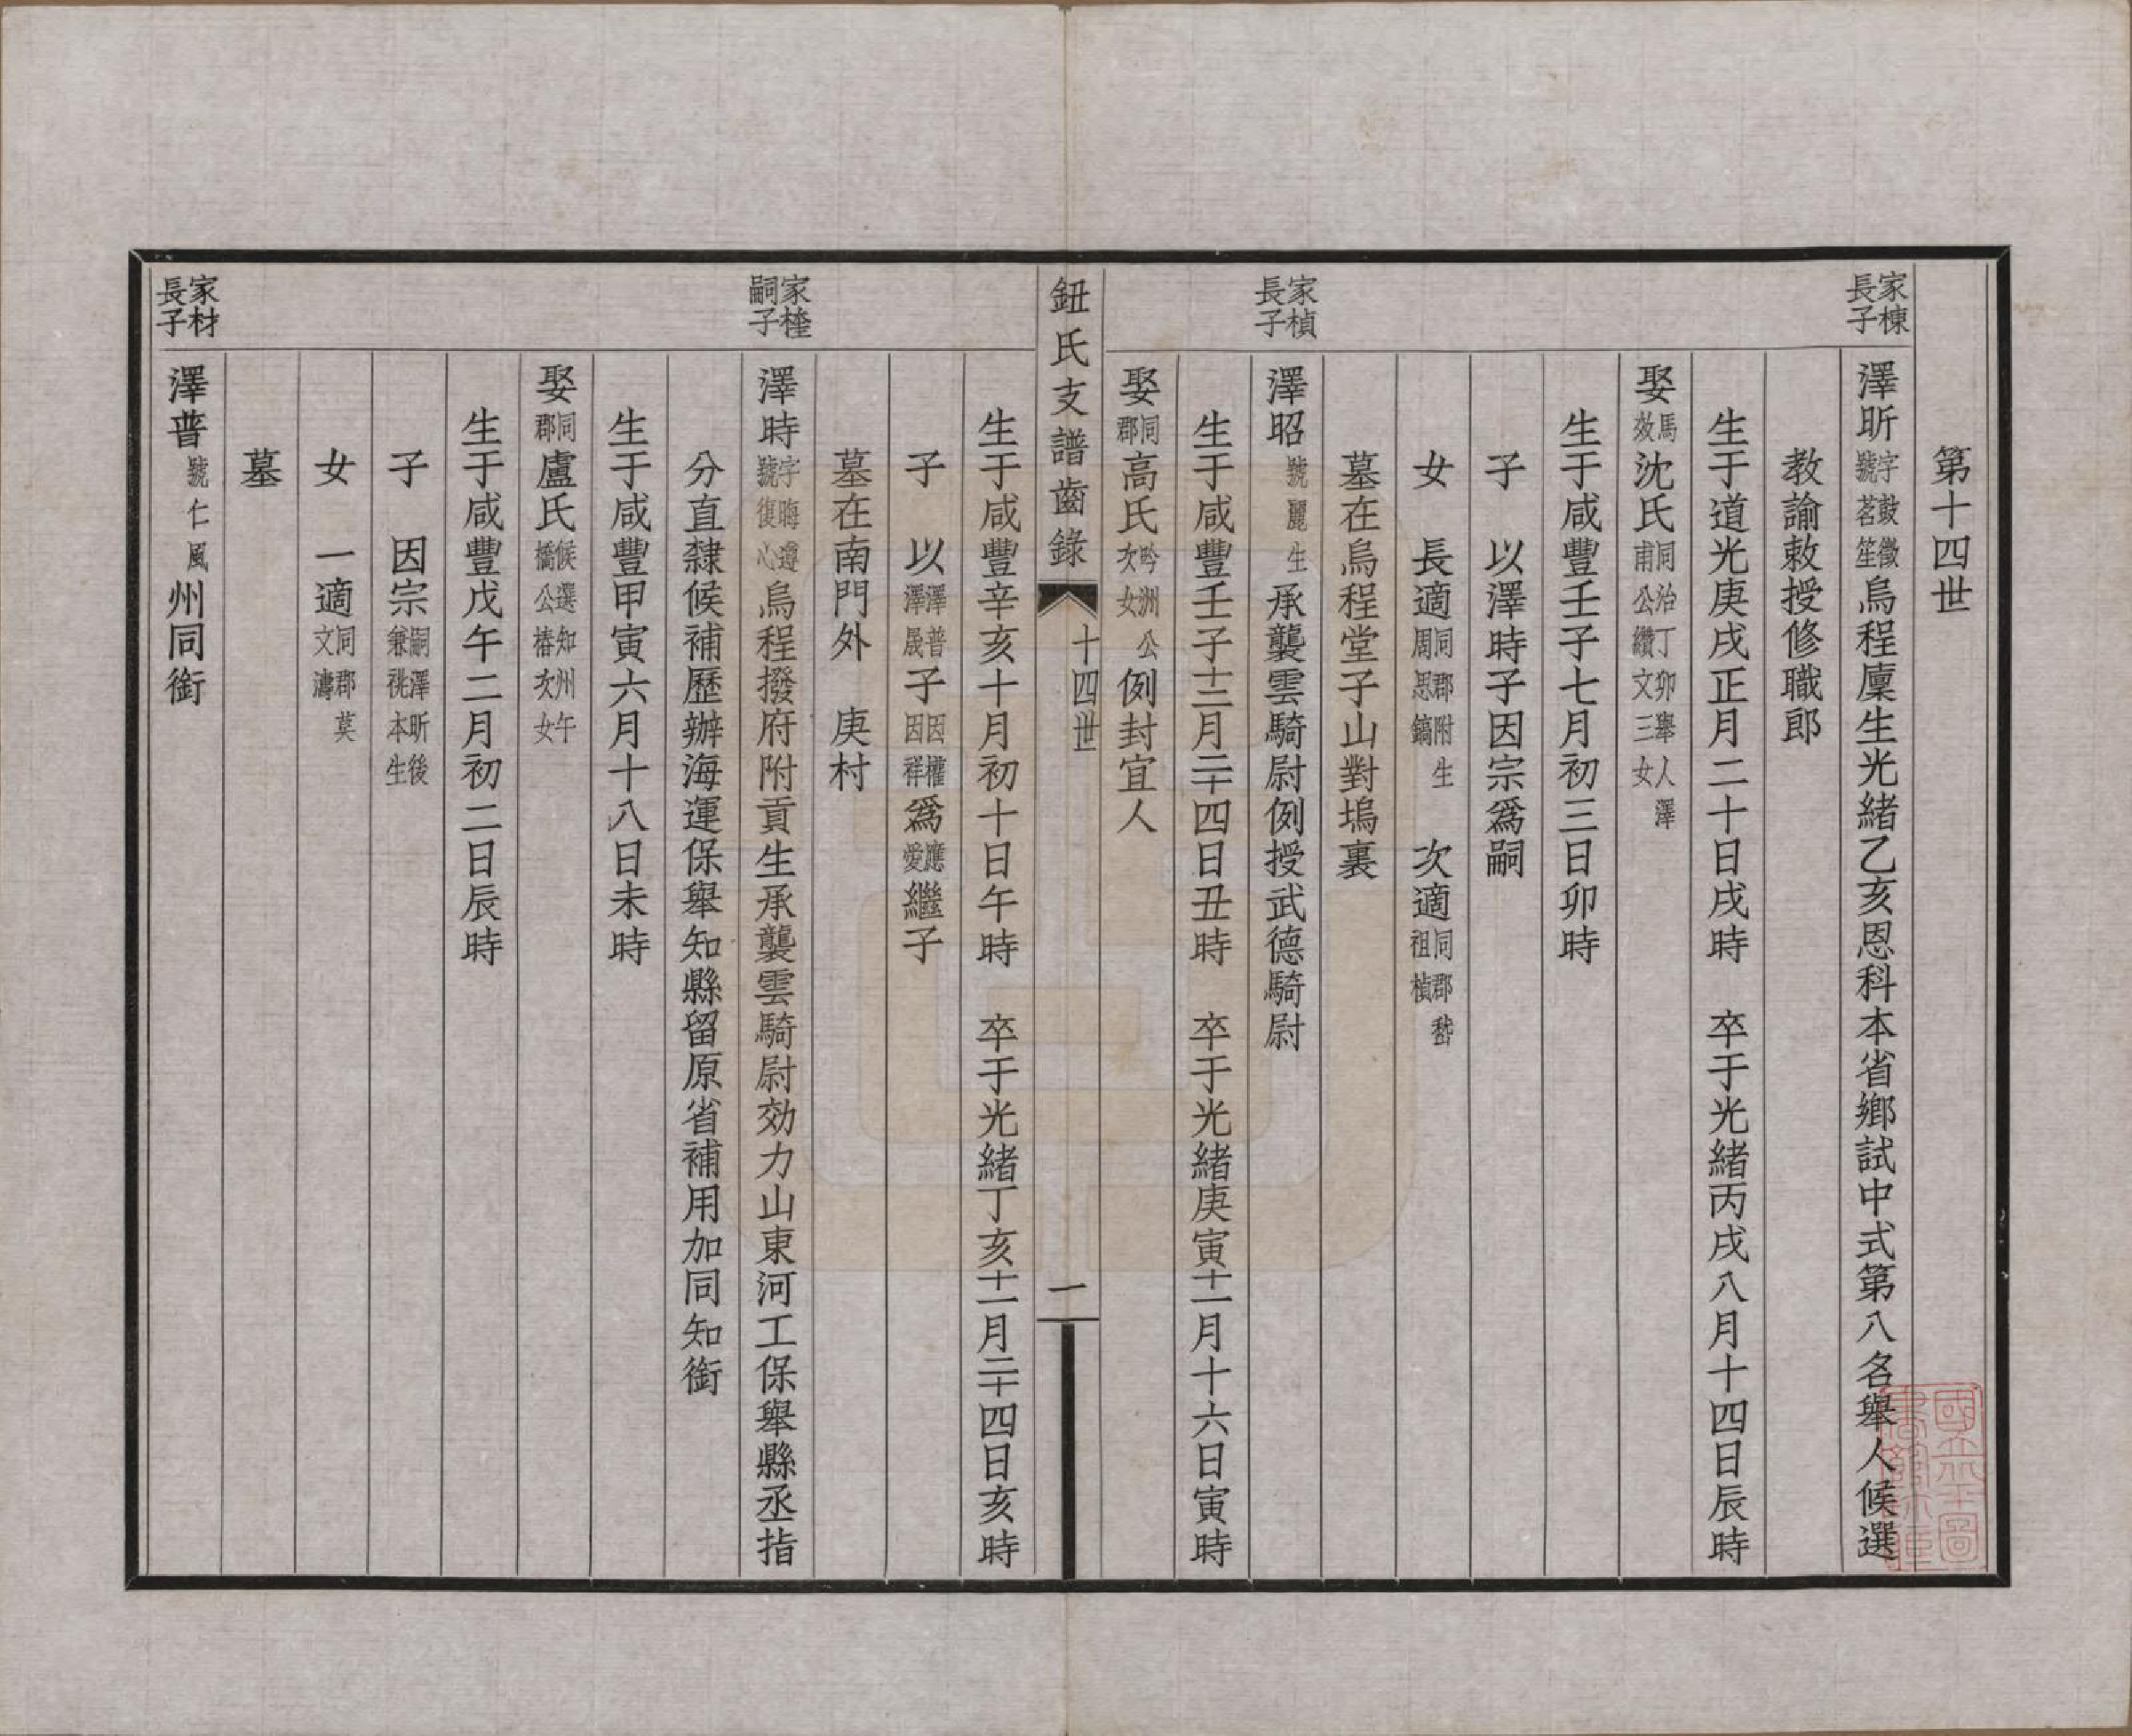 第十四世
家棟長子
澤昕字鼓徵號茗笙烏程廩生光緒乙亥恩科本省鄉試中式第八名舉人候選
教諭敕授修職郎
生于道光庚戌正月二十日戌時 卒于光緒丙戌八月十四日辰時
娶馬效沈氏同治丁卯舉人澤甫公纘文三女
生于咸豐壬子七月初三日卯時
子 以澤時子因宗爲嗣
女 長適同郡附生周思鎬 次適同郡嵇祖楨
墓在烏程堂子山對塢裏
家楨長子
澤昭號麗生承襲雲騎尉例授武德騎尉
生于咸豐壬子十二月二十四日丑時 卒于光緒庚寅十一月十六日寅時
娶同郡高氏吟洲公次女例封宜人
鈕氏支譜齒錄 十四世 一
生于咸豐辛亥十月初十日午時 卒于光緒丁亥十一月二十四日亥時
子 以澤普澤晟子因權因祥爲應愛繼子
墓在南門外 庚村
家橦嗣子
澤時字晦遵號復心烏程撥府附貢生承襲雲騎尉効力山東河工保舉縣丞指
分直隸候補歷辦海運保舉知縣留原省補用加同知銜
生于咸豐甲寅六月十八日未時
娶同郡盧氏候選知州午橋公椿次女
生于咸豐戊午二月初二日辰時
子 因宗嗣澤昕後兼祧本生
女 一適同郡莫文濤
墓
家材長子
澤普號仁風州同銜